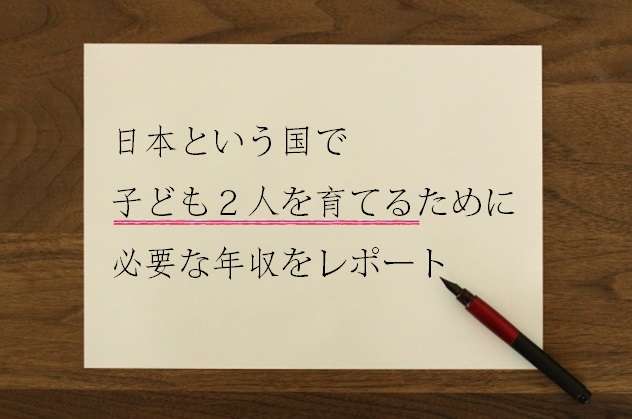 日本という国で
子ども２人を育てるために
必要な年収をレポート